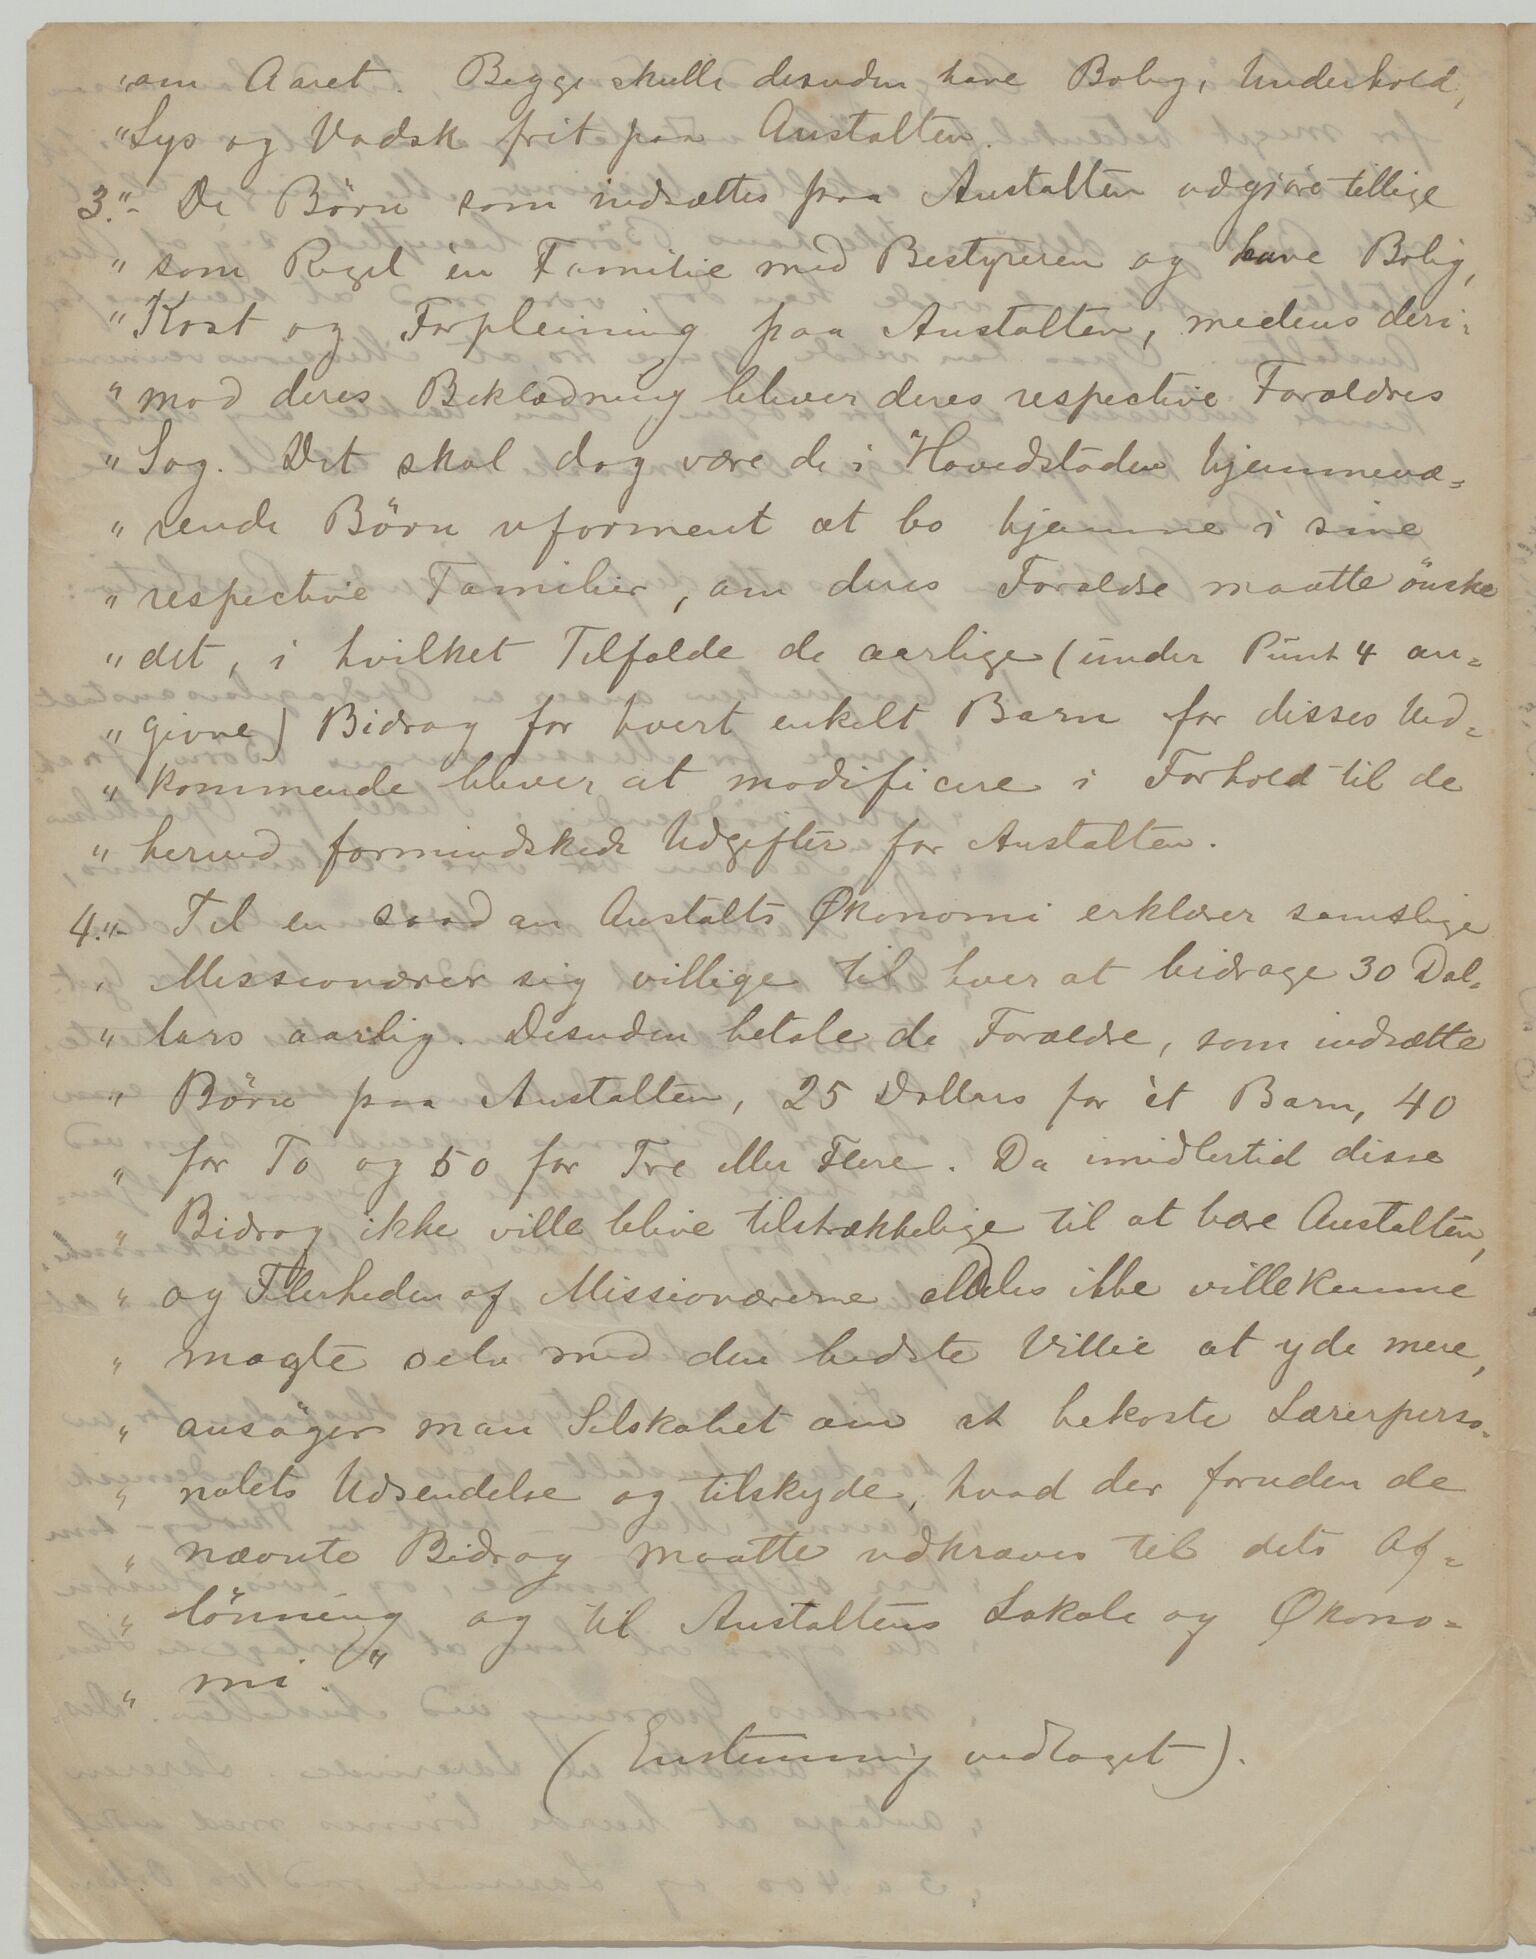 "om Aaret. Begge skulle desuden have Bolig, Underhold,
"Lys og Vadsk frit paa Anstalten.
3."- De Börn som indsættes paa Anstalten udgjöre tillige
" som Regel én Familie med Bestyreren og have Bolig,
" Kost og Forpleining paa Anstalten, medens deri=
" mod deres Beklædning bliver deres respective Forældres
" Sag. Det skal dog være de i Hovedstaden hjemmevæ=
" rende Börn uforment at bo hjemme i sine
" respective Familier, om deres Forældre maatte önske
" det, i hvilket Tilfælde de aarlige (under Punkt 4 an=
" givne) Bidrag for hvert enkelt Barn for disses Ved=
" kommende bliver at modificere i Forhold til de
" herved formindskede Udgifter for Anstalten.
4."- Til en saadan Anstalts Økonomi erklærer samtlige
" Missionærer sig villige til hver at bidrage 30 Dol=
" lars aarlig. Desuden betale de Forældre, som indsætte
" Börn paa Anstalten, 25 Dollars for èt Barn, 40
" for To og 50 for Tre eller Flere. Da imidlertid disse
" Bidrag ikke ville blive tilstrækkelige til at bære Anstalten,
" og Flerheden af Missionærerne aldeles ikke ville kunne
" magte selv med den bedste Villie at yde mere,
" ansöger man Selskabet om at bekoste Lærerperso=
" nalets Udsendelse og tilskyde, hvad der foruden de
" nævnte Bidrag maatte udkræves til dets Af=
" lönning og til Anstaltens Lokale og Økono=
" mi."
(Enstemmig vedtaget).